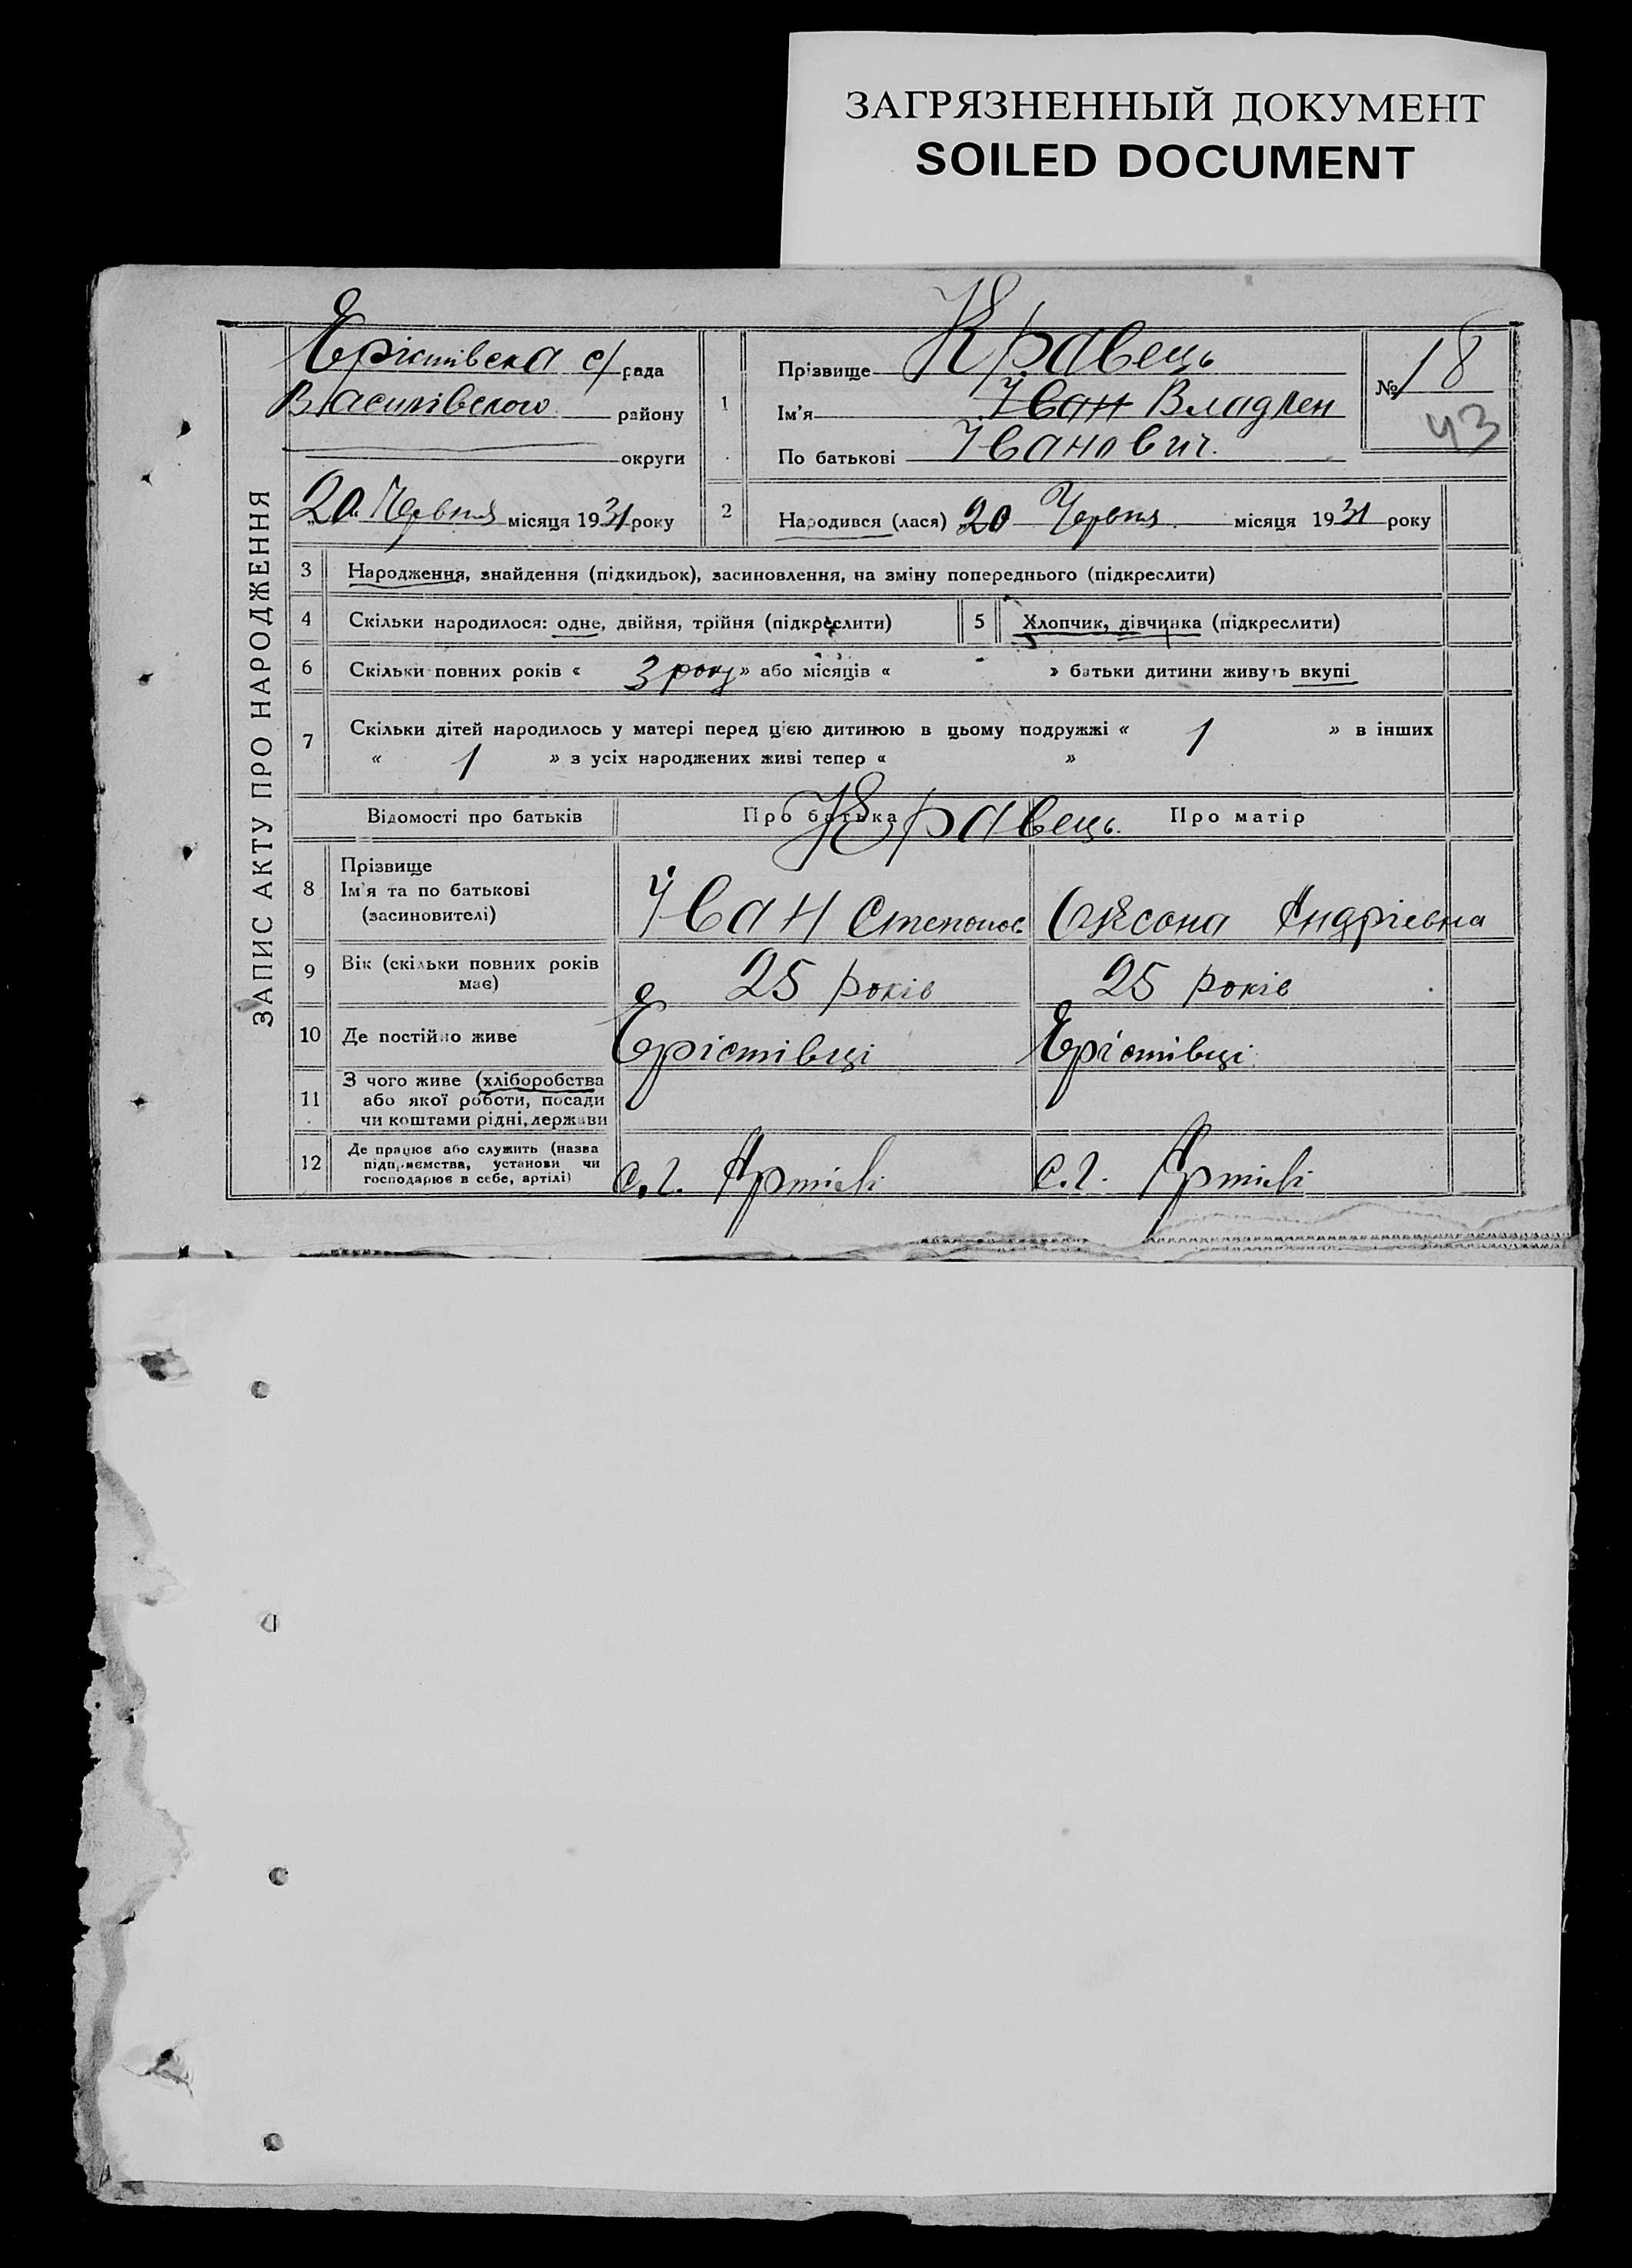 ЗАГРЯЗНЕННЫЙ ДОКУМЕНТ
SOILED DOCUMENT
ЗАПИС АКТУ ПРО НАРОДЖЕННЯ
Ерістівска с/рада
Василівского району
округи
20 Червня місяця 1931 року
1
Прізвище Кравець
Ім'я Іван Владлен
По батькові Іванович.
№ 18
43
2 Народився (лася) 20 Червня місяця 1931 року
3 Народження, знайдення (підкидьок), засиновлення, на зміну попереднього (підкреслити)
4 Скільки народилося: одне, двійня, трійня (підкреслити) 5 Хлопчик, дівчинка (підкреслити)
6 Скільки повних років « 3 року » або місяців « - » батьки дитини живуть вкупі
7 Скільки дітей народилось у матері перед цією дитиною в цьому подружжі « 1 » в інших
« 1 » з усіх народжених живі тепер « »
Відомості про батьків Про батька Кравець. Про матір
8 Прізвище
Ім'я та по батькові
(засиновителі)
Іван Степанов Оксана Андрієвна
9 Вік (скільки повних років
має)
25 років 25 років
10 Де постійно живе Ерістівці Ерістівці
11 З чого живе (хліборобства
або якої роботи, посади
чи коштами рідні, держави
12 Де працює або служить (назва
підприємства, установи чи
господарює в себе, артілі)
с.г. Артілі с.г. Артілі